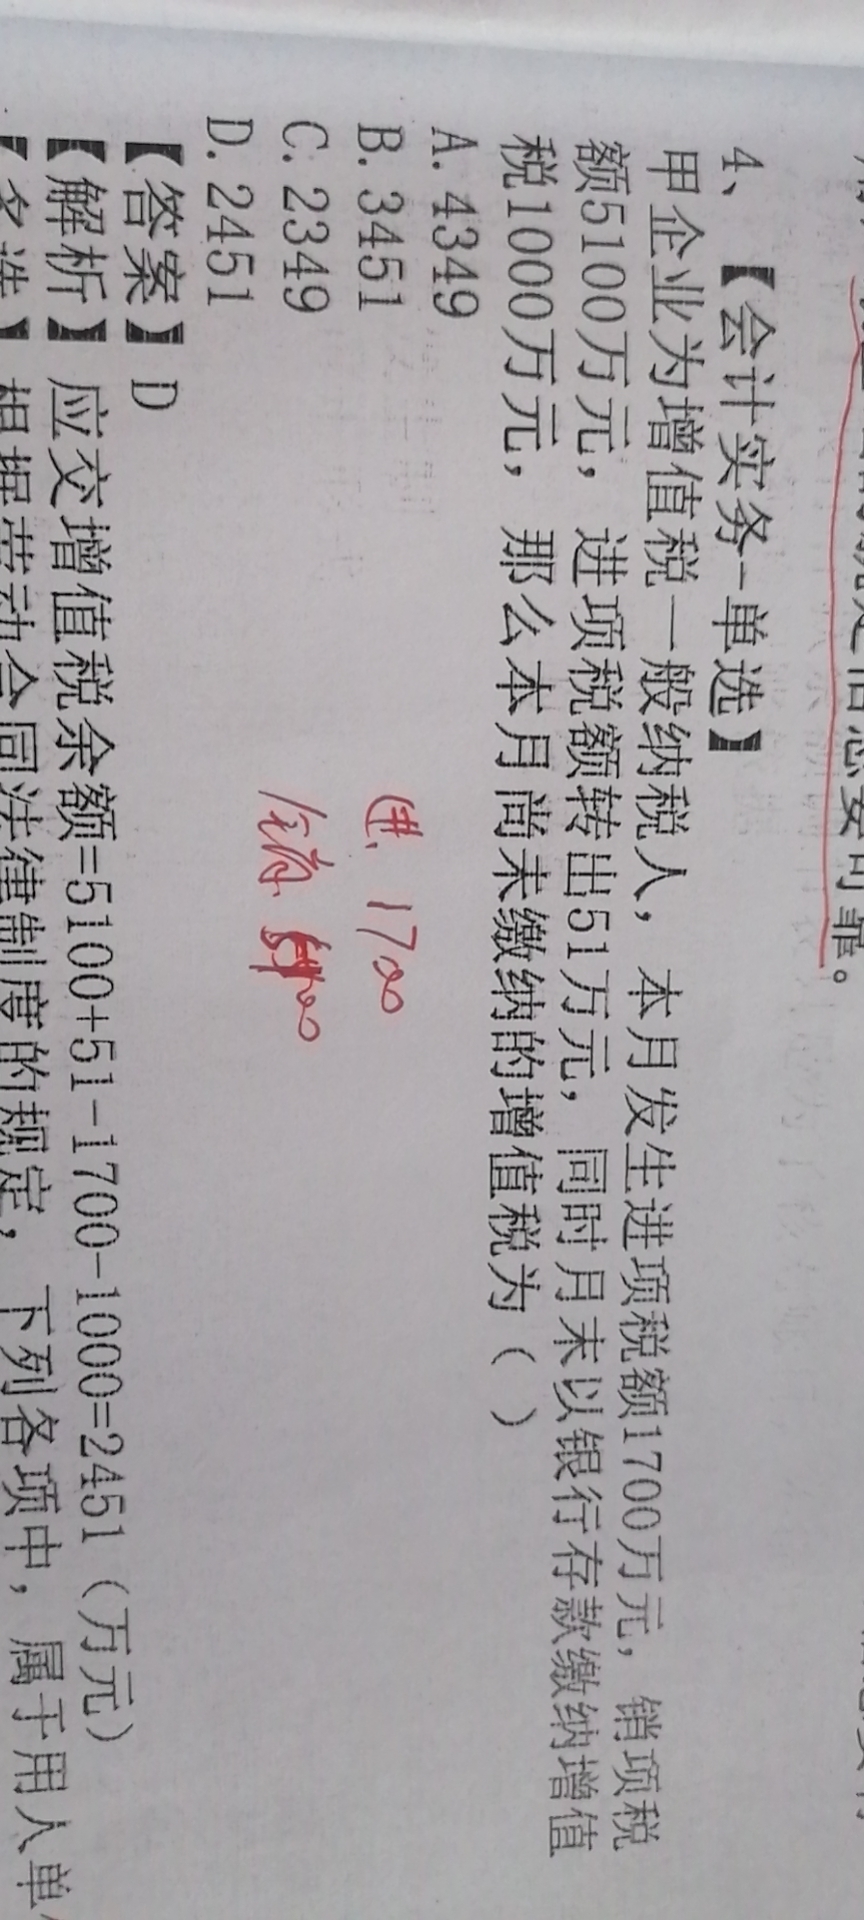 4、【会计实务-单选】
甲企业为增值税一般纳税人，本月发生进项税额1700万元，销项税
额5100万元，进项税额转出51万元，同时月末以银行存款缴纳增值
税1000万元，那么本月尚未缴纳的增值税为（ ）
A.4349
B.3451
C.2349
D.2451
进 1700
销
【答案】D
【解析】应交增值税余额=5100+51-1700-1000=2451（万元）
【多选】根据劳动合同法律制度的规定，下列各项中，属于用人单